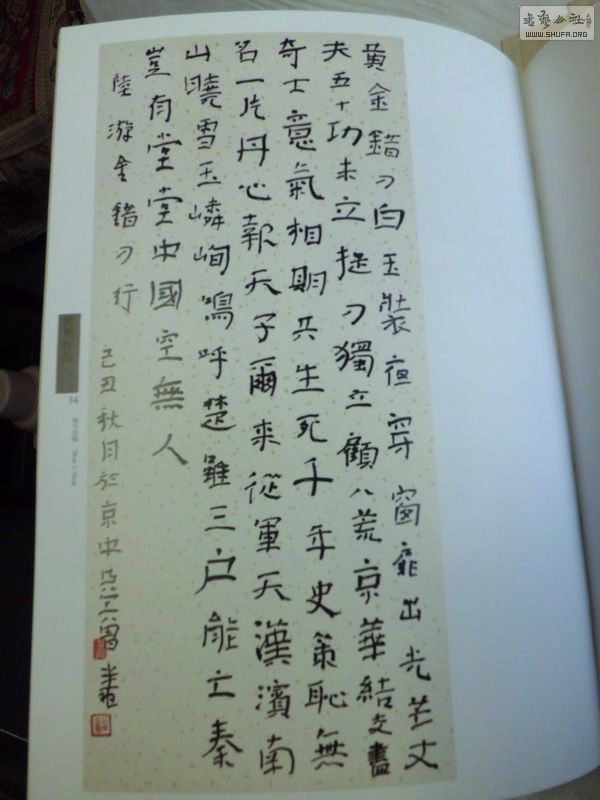 書藝公社
WWW.SHUFA.ORG
黄金錯刀白玉裝夜穿窗扉出光芒丈
夫五十功未立提刀獨立顧八荒京華結交盡
奇士意氣相期共生死千年史策恥無
名一片丹心報天子爾來從軍天漢濱南
山曉雪玉嶙峋嗚呼楚雖三户能亡秦
豈有堂堂中國空無人
陸游金錯刀行
己丑秋月於京中
34